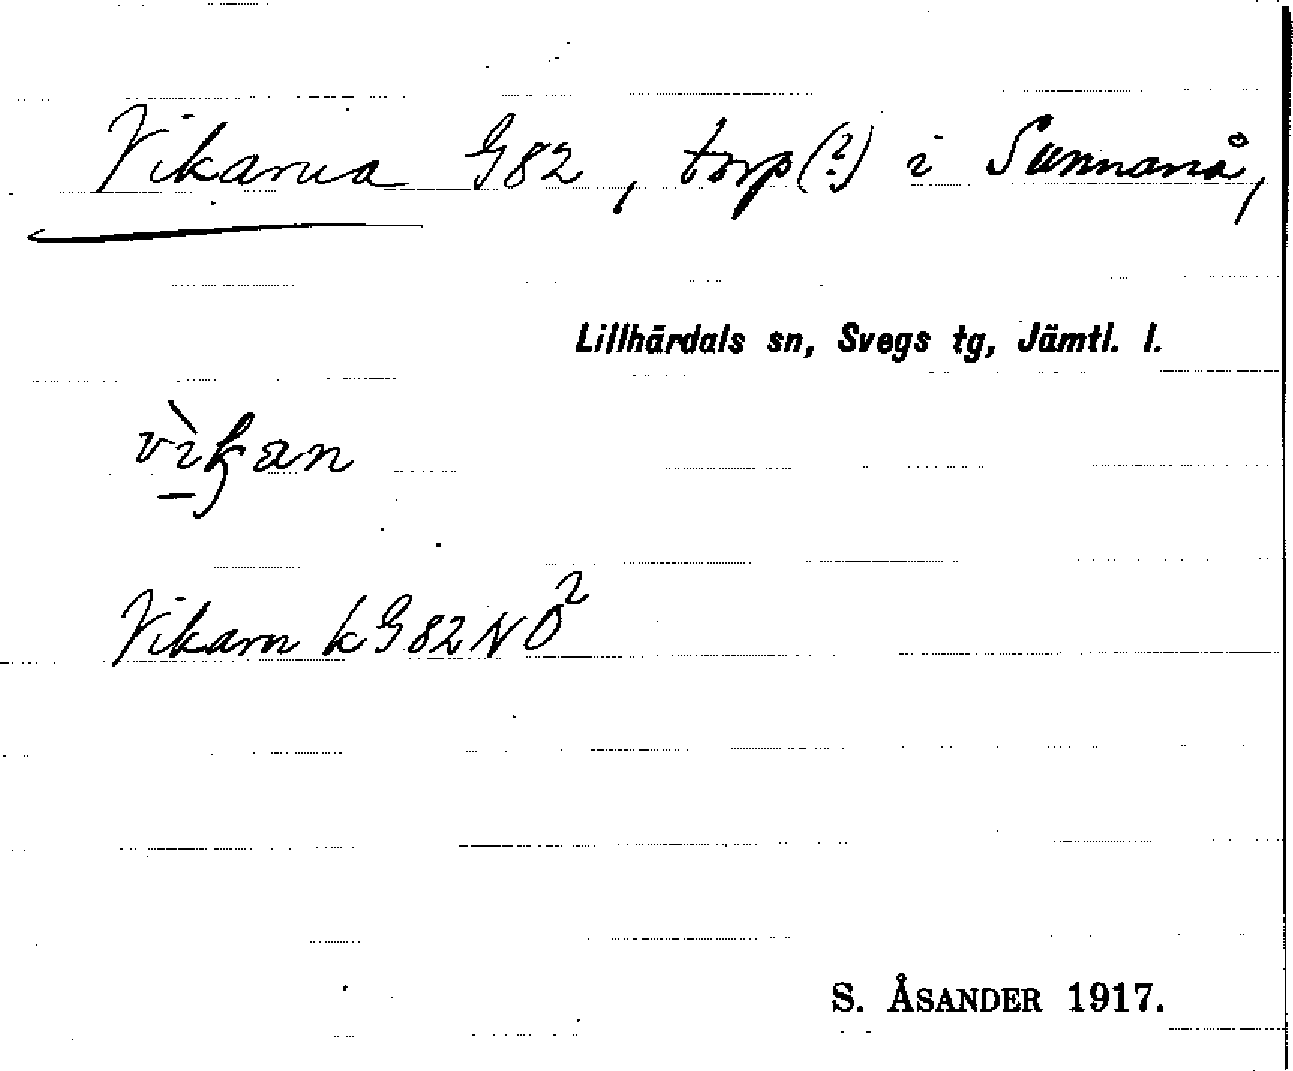 Vikarna G82, torp(?) i Sunnanå,
Lillhärdals sn, Svegs tg, Jämtl. l.
vìkan
Vikarn k G 82 NO²
S. ÅSANDER 1917.